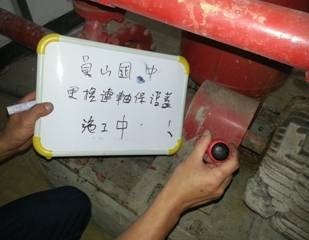 員山國中
更換連軸保護蓋
施工中